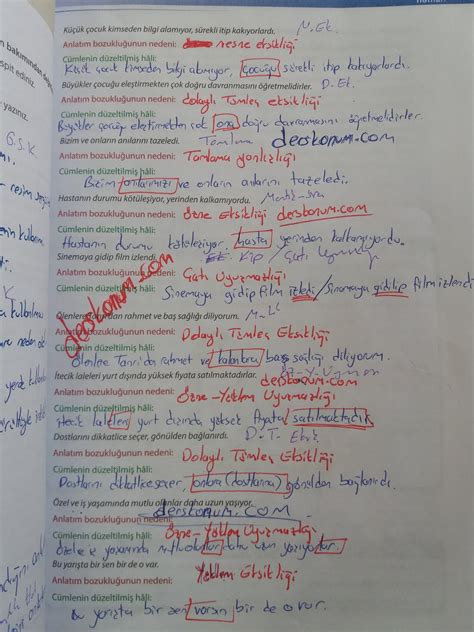 Küçük çocuk kimseden bilgi alamıyor, sürekli itip kakıyorlardı. N. Ek.
Anlatım bozukluğunun nedeni: nesne eksikliği
Cümlenin düzeltilmiş hâli:
Küçük çocuk kimseden bilgi alamıyor, çocuğu sürekli itip kakıyorlardı.
Büyükler çocuğu eleştirmekten çok doğru davranmasını öğretmelidirler. D. Ek.
Anlatım bozukluğunun nedeni: dolaylı Tümleç eksikliği
Cümlenin düzeltilmiş hâli:
Büyükler çocuğu eleştirmekten çok ona doğru davranmasını öğretmelidirler.
Bizim ve onların anılarını tazeledi. Tamlama derskonum.com
Anlatım bozukluğunun nedeni: Tamlama yanlışlığı
Cümlenin düzeltilmiş hâli:
Bizim anılarımızı ve onların anılarını tazeledi.
Hastanın durumu kötüleşiyor, yerinden kalkamıyordu.
Anlatım bozukluğunun nedeni: Özne Eksikliği derskonum.com
Cümlenin düzeltilmiş hâli:
Hastanın durumu kötüleşiyor, hasta yerinden kalkamıyordu.
Sinemaya gidip film izlendi. Ek. Kip / Çatı Uyumsuzluğu
Anlatım bozukluğunun nedeni: Çatı Uyuşmazlığı
Cümlenin düzeltilmiş hâli: Sinemaya gidip film izledi / Sinemaya gidilip film izlendi
derskonum.com
Ölenlere Tanrıdan rahmet ve baş sağlığı diliyorum.
Anlatım bozukluğunun nedeni: Dolaylı Tümleç Eksikliği
Cümlenin düzeltilmiş hâli:
Ölenlere Tanrı'dan rahmet ve kalanlara baş sağlığı diliyorum.
İtecik laleleri yurt dışında yüksek fiyata satılmaktadırlar. derskonum.com
Anlatım bozukluğunun nedeni: Özne-Yüklem Uyumsuzluğu
Cümlenin düzeltilmiş hâli:
laleleri yurt dışında yüksek fiyata satılmaktadır.
Dostlarını dikkatlice seçer, gönülden bağlanırdı. D. T. Ek.
Anlatım bozukluğunun nedeni: Dolaylı Tümleç Eksikliği
Cümlenin düzeltilmiş hâli:
Dostlarını dikkatlice seçer, onlara (dostlarına) gönülden bağlanırdı.
Özel ve iş yaşamında mutlu olanlar daha uzun yaşıyor.
derskonum.com
Anlatım bozukluğunun nedeni:
Cümlenin düzeltilmiş hâli: Özne-Yüklem Uyumsuzluğu
Özel ve iş yaşamında mutlu olanlar daha uzun yaşıyorlar.
Bu yarışta bir sen bir de o var.
Anlatım bozukluğunun nedeni: Yüklem Eksikliği
Cümlenin düzeltilmiş hâli:
Bu yarışta bir sen varsın bir de o var.